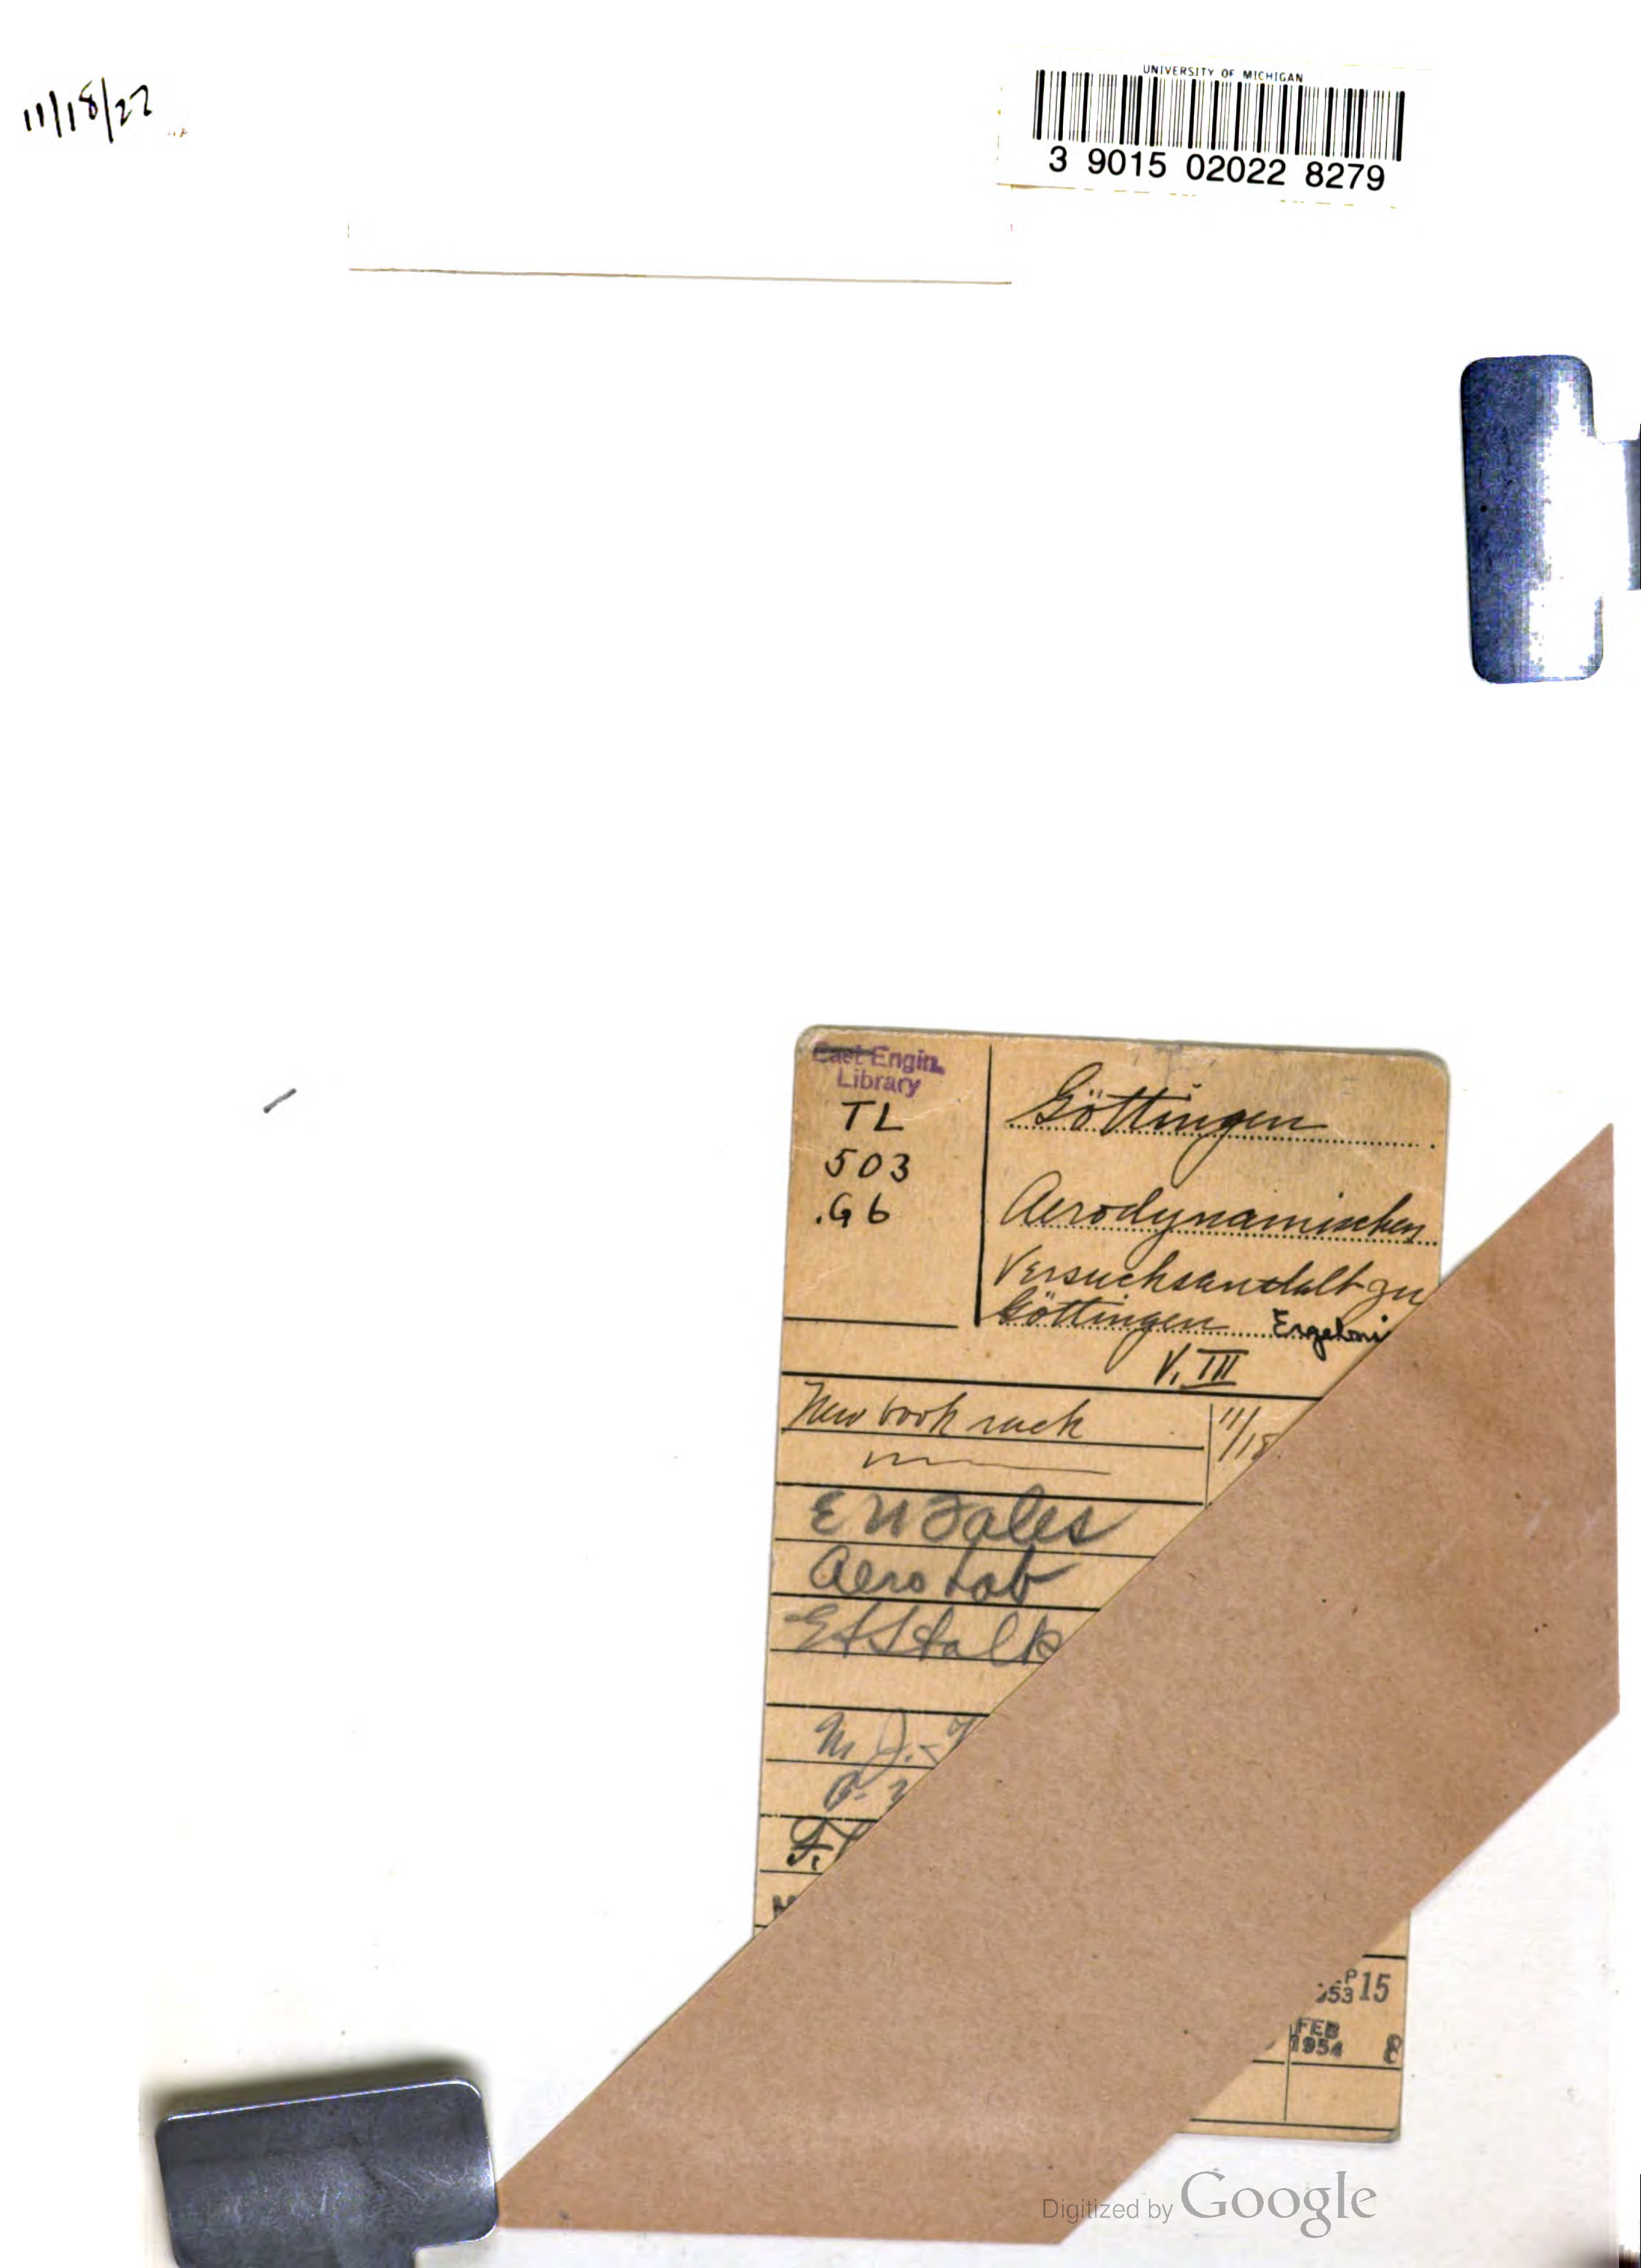 11/18/27
UNIVERSITY OF MICHIGAN
3 9015 02022 8279
East Engin.
Library
TL
503
.G6
Göttingen
Aerodynamischen
Versuchsanstalt zu
Göttingen Ergebni
V. III
New book rack 11/18
E N Fales
Aero Lab
M. J.
F.
53 15
FEB
1954 8
Digitized by Google